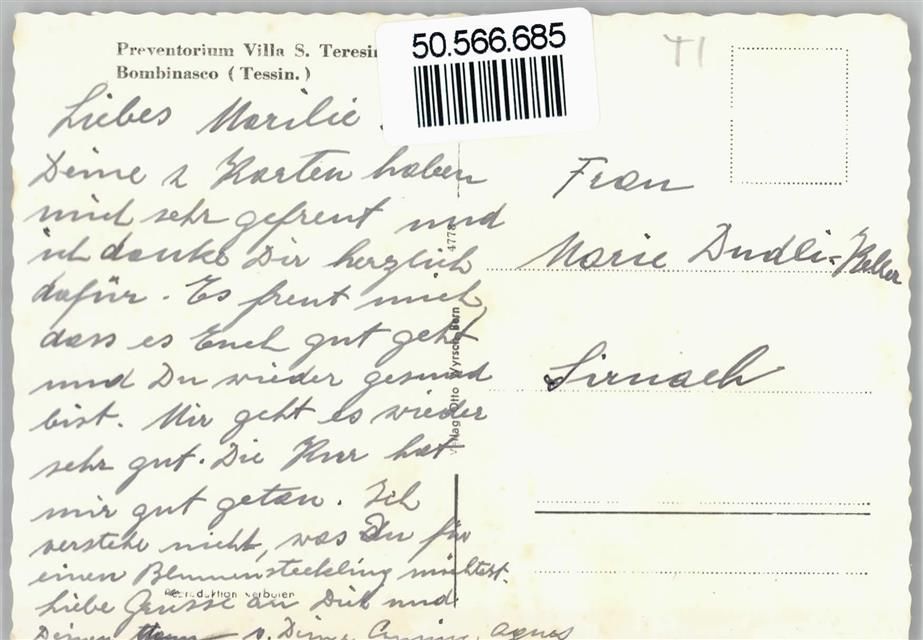 Preventorium Villa S. Teresin
Bombinasco (Tessin.)
50.566.685
TI
Liebes Marilie.
Deine 2 Karten haben
mich sehr gefreut und
ich danke Dir herzlich
dafür. Es freut mich
dass es Euch gut geht
und Du wieder gesund
bist. Mir geht es wieder
sehr gut. Die Kur hat
mir gut getan. Ich
verstehe nicht, was Du für
einen Blumensteckling möchtest.
Liebe Grüsse an Dich und
Deinen v. Deiner Agnes
Reproduktion verboten
4778
Verlag Otto Wyrsch, Bern
Frau
Marie Dudli-Keller
Sirnach